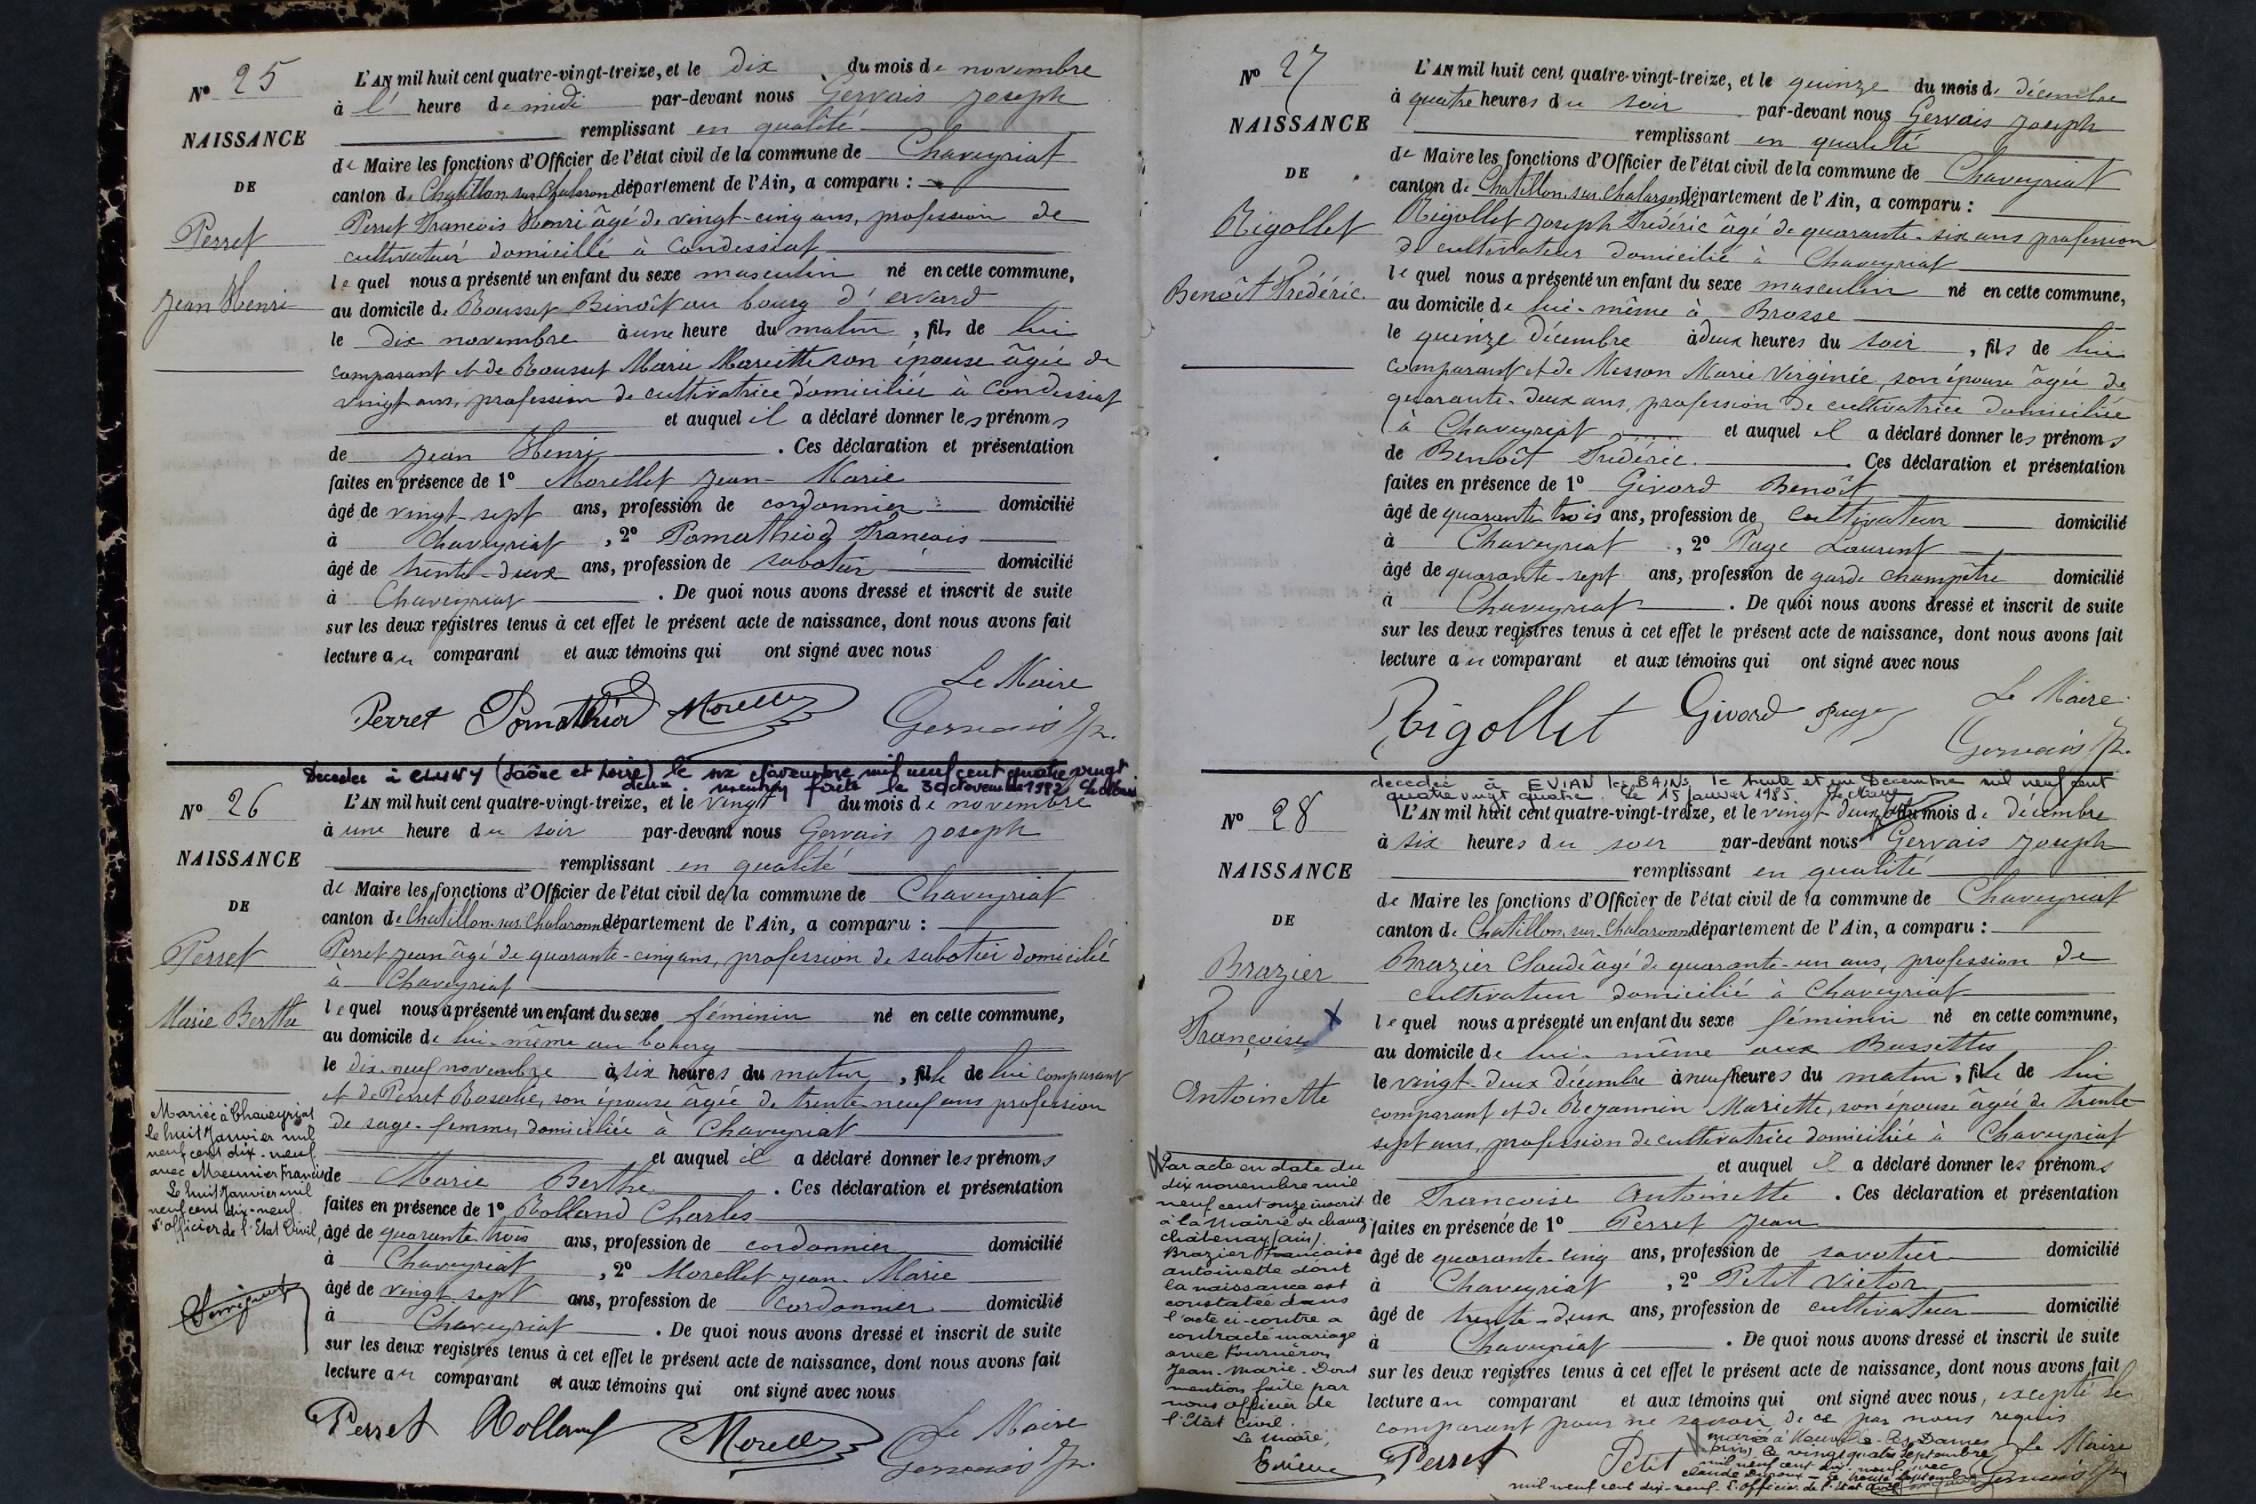 Nº 25
NAISSANCE
DE
Perret
Jean Henri
L'AN mil huit cent quatre-vingt-treize, et le dix du mois de novembre
à l' heure de midi par-devant nous Gervais Joseph
remplissant en qualité
de Maire les fonctions d'Officier de l'état civil de la commune de Chaveyriat
canton de Chatillon sur Chalaronne département de l'Ain, a comparu :
Perret Francois Henri âgé de vingt-cinq ans, profession de
cultivateur domicilié à Condessiat
lequel nous a présenté un enfant du sexe masculin né en cette commune,
au domicile de Rousset Benoît au bourg d'
le dix novembre à une heure du matin, fils de lui
comparant et de Rousset Marie Mariette son épouse âgée de
vingt ans, profession de cultivatrice domiciliée à Condessiat
et auquel il a déclaré donner les prénoms
de Jean Henri. Ces déclaration et présentation
faites en présence de 1º Morellet Jean-Marie
âgé de vingt-sept ans, profession de cordonnier domicilié
à Chaveyriat, 2º Pomathiod Francois
âgé de trente-deux ans, profession de sabotier domicilié
à Chaveyriat. De quoi nous avons dressé et inscrit de suite
sur les deux registres tenus à cet effet le présent acte de naissance, dont nous avons fait
lecture au comparant et aux témoins qui ont signé avec nous
Le Maire
Perret Pomathiod Morellet Gervais Jh.
Décédée à CLUNY (Saône et Loire) le six novembre mil neuf cent quatre vingt
deux. mention faite le 30 novembre 1982
Nº 26
NAISSANCE
DE
Perret
Marie Berthe
L'AN mil huit cent quatre-vingt-treize, et le vingt du mois de novembre
à une heure du soir par-devant nous Gervais Joseph
remplissant en qualité
de Maire les fonctions d'Officier de l'état civil de la commune de Chaveyriat
canton de Chatillon-sur-Chalaronne département de l'Ain, a comparu :
Perret Jean âgé de quarante-cinq ans, profession de sabotier domicilié
à Chaveyriat
lequel nous a présenté un enfant du sexe féminin né en cette commune,
au domicile de lui-même au bourg
le dix-neuf novembre à six heures du matin, fille de lui comparant
et de Perret Rosalie, son épouse âgée de trente-neuf ans profession
de sage-femme, domiciliée à Chaveyriat
et auquel il a déclaré donner les prénoms
de Marie Berthe. Ces déclaration et présentation
faites en présence de 1º Rolland Charles
âgé de quarante trois ans, profession de cordonnier domicilié
à Chaveyriat, 2º Morellet Jean-Marie
âgé de vingt sept ans, profession de cordonnier domicilié
à Chaveyriat. De quoi nous avons dressé et inscrit de suite
sur les deux registres tenus à cet effet le présent acte de naissance, dont nous avons fait
lecture au comparant et aux témoins qui ont signé avec nous
Le Maire
Perret Rolland Morellet Gervais Jh.
Mariée à Chaveyriat
le huit Janvier mil
neuf cent dix-neuf
avec Meunier Francis
Le huit Janvier mil
neuf cent dix-neuf.
L'officier de l'Etat Civil,
Nº 27
NAISSANCE
DE
Rigollet
Benoît Frédéric
L'AN mil huit cent quatre-vingt-treize, et le quinze du mois de décembre
à quatre heures du soir par-devant nous Gervais Joseph
remplissant en qualité
de Maire les fonctions d'Officier de l'état civil de la commune de Chaveyriat
canton de Chatillon-sur-Chalaronne département de l'Ain, a comparu :
Rigollet Joseph Frédéric âgé de quarante-six ans profession
de cultivateur domicilié à Chaveyriat
lequel nous a présenté un enfant du sexe masculin né en cette commune,
au domicile de lui-même à Brosse
le quinze décembre à deux heures du soir, fils de lui
comparant et de Messon Marie Virginie, son épouse âgée de
quarante-deux ans, profession de cultivatrice domiciliée
à Chaveyriat et auquel il a déclaré donner les prénoms
de Benoît Frédéric. Ces déclaration et présentation
faites en présence de 1º Givord Benoît
âgé de quarante trois ans, profession de cultivateur domicilié
à Chaveyriat, 2º Page Laurent
âgé de quarante-sept ans, profession de garde champêtre domicilié
à Chaveyriat. De quoi nous avons dressé et inscrit de suite
sur les deux registres tenus à cet effet le présent acte de naissance, dont nous avons fait
lecture au comparant et aux témoins qui ont signé avec nous
Le Maire
Rigollet Givord Page Gervais Jh.
décédée à EVIAN les BAINS le trente et un Décembre mil neuf cent
quatre vingt quatre. Le 15 janvier 1985. Le Maire
Nº 28
NAISSANCE
DE
Brazier
Françoise
Antoinette
L'AN mil huit cent quatre-vingt-treize, et le vingt-deux du mois de décembre
à six heures du soir par-devant nous Gervais Joseph
remplissant en qualité
de Maire les fonctions d'Officier de l'état civil de la commune de Chaveyriat
canton de Chatillon-sur-Chalaronne département de l'Ain, a comparu :
Brazier Claude âgé de quarante-un ans, profession de
cultivateur domicilié à Chaveyriat
lequel nous a présenté un enfant du sexe féminin né en cette commune,
au domicile de lui-même aux Bussettes
le vingt-deux décembre à neuf heures du matin, fille de lui
comparant et de Rezannin Mariette, son épouse âgée de trente
sept ans, profession de cultivatrice domiciliée à Chaveyriat
et auquel il a déclaré donner les prénoms
de Francoise Antoinette. Ces déclaration et présentation
faites en présence de 1º Perret Jean
âgé de quarante-cinq ans, profession de savotier domicilié
à Chaveyriat, 2º Petit Victor
âgé de trente-deux ans, profession de cultivateur domicilié
à Chaveyriat. De quoi nous avons dressé et inscrit de suite
sur les deux registres tenus à cet effet le présent acte de naissance, dont nous avons fait
lecture au comparant et aux témoins qui ont signé avec nous, excepté le
comparant pour ne savoir, de ce par nous requis
Le Maire
Perret Petit Gervais Jh.
Par acte en date du
dix novembre mil
neuf cent onze inscrit
à la Mairie de
chatenay (ain)
Brazier Francoise
Antoinette dont
la naissance est
constatée dans
l'acte ci-contre a
contracté mariage
avec Fournéron
Jean-Marie. Dont
mention faite par
nous officier de
l'Etat Civil.
Le Maire,
mariée à Neuville-les-Dames
(ain) le vingt quatre septembre
mil neuf cent dix-neuf avec
claude - Le trente septembre
mil neuf cent dix-neuf. L'officier de l'état civil